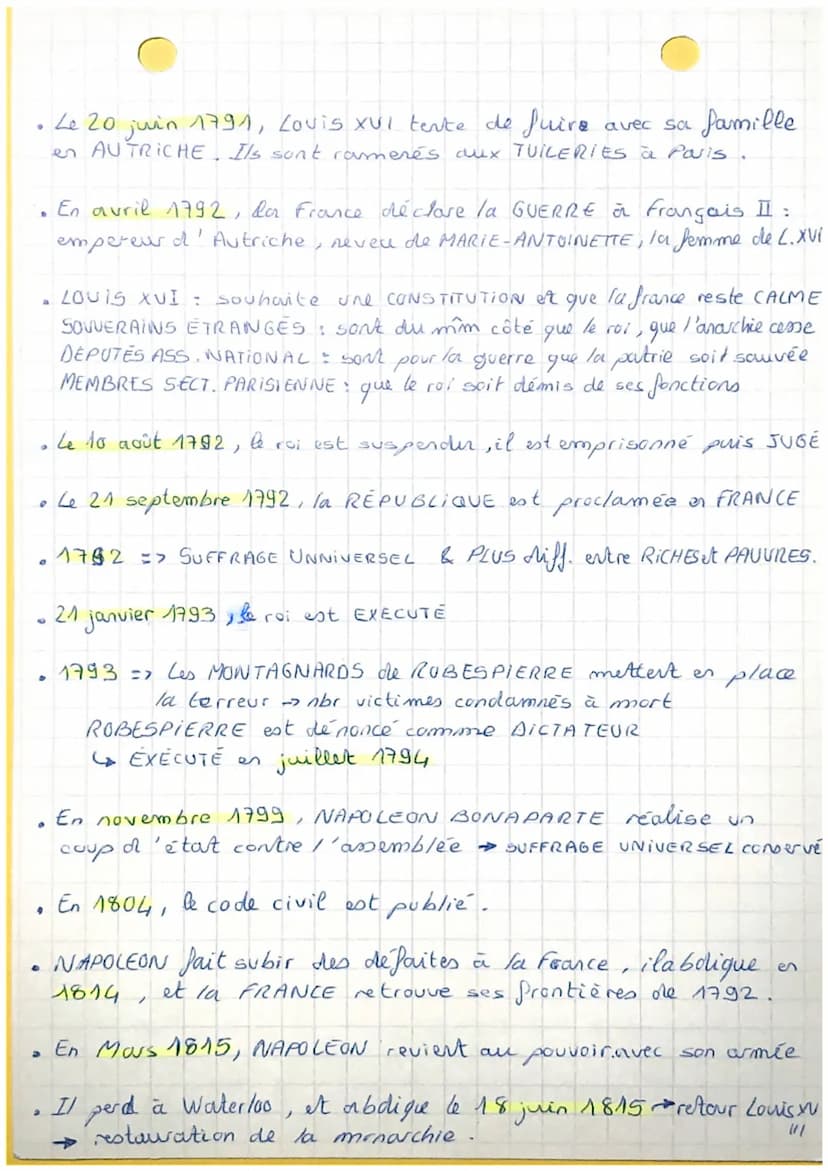 • Le 20 juin 1791, Louis XVI tente de fuire avec sa famille
en AUTRICHE. Ils sont ramenés aux TUILERIES à Paris.
• En avril 1792, la France déclare la GUERRE à François II :
empereur d'Autriche, neveu de MARIE-ANTOINETTE, la femme de L.XVI
• LOUIS XVI : souhaite une CONSTITUTION et que la france reste CALME
SOUVERAINS ÉTRANGÉS : sont du mîm côté que le roi, que l'anarchie cesse
DÉPUTÉS ASS. NATIONAL : sont pour la guerre que la patrie soit sauvée
MEMBRES SECT. PARISIENNE : que le roi soit démis de ses fonctions
• Le 10 août 1792, le roi est suspendu, il est emprisonné puis JUGÉ
• Le 21 septembre 1792, la RÉPUBLIQUE est proclamée en FRANCE
• 1792 => SUFFRAGE UNNIVERSEL & PLUS diff. entre RICHES et PAUVRES.
• 21 janvier 1793, le roi est EXECUTÉ
• 1793 => Les MONTAGNARDS de ROBESPIERRE mettent en place
la terreur → nbr victimes condamnés à mort
ROBESPIERRE est dénoncé comme DICTATEUR
↳ EXÉCUTÉ en juillet 1794
• En novembre 1799, NAPOLEON BONAPARTE réalise un
coup d'état contre l'assemblée → SUFFRAGE UNIVERSEL conservé
• En 1804, le code civil est publié.
• NAPOLEON fait subir des défaites à la France, il abdique en
1814, et la FRANCE retrouve ses frontières de 1792.
• En Mars 1815, NAPOLEON revient au pouvoir avec son armée
• Il perd à Waterloo, et abdique le 18 juin 1815 → retour Louis XV
III
→ restauration de la monarchie.